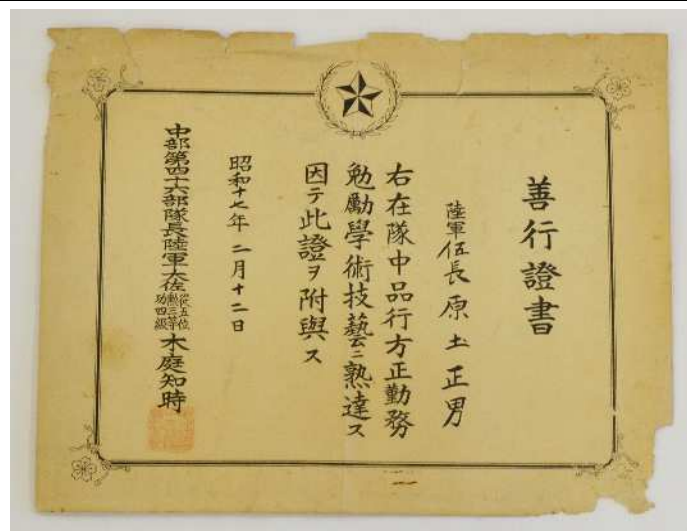 善行證書
陸軍伍長 原土正男
右在隊中品行方正勤務
勉勵學術技藝ニ熟達ス
因テ此證ヲ附與ス
昭和十七年二月十二日
中部第四十六部隊長陸軍大佐 從五位 勲三等 功四級 木庭知時